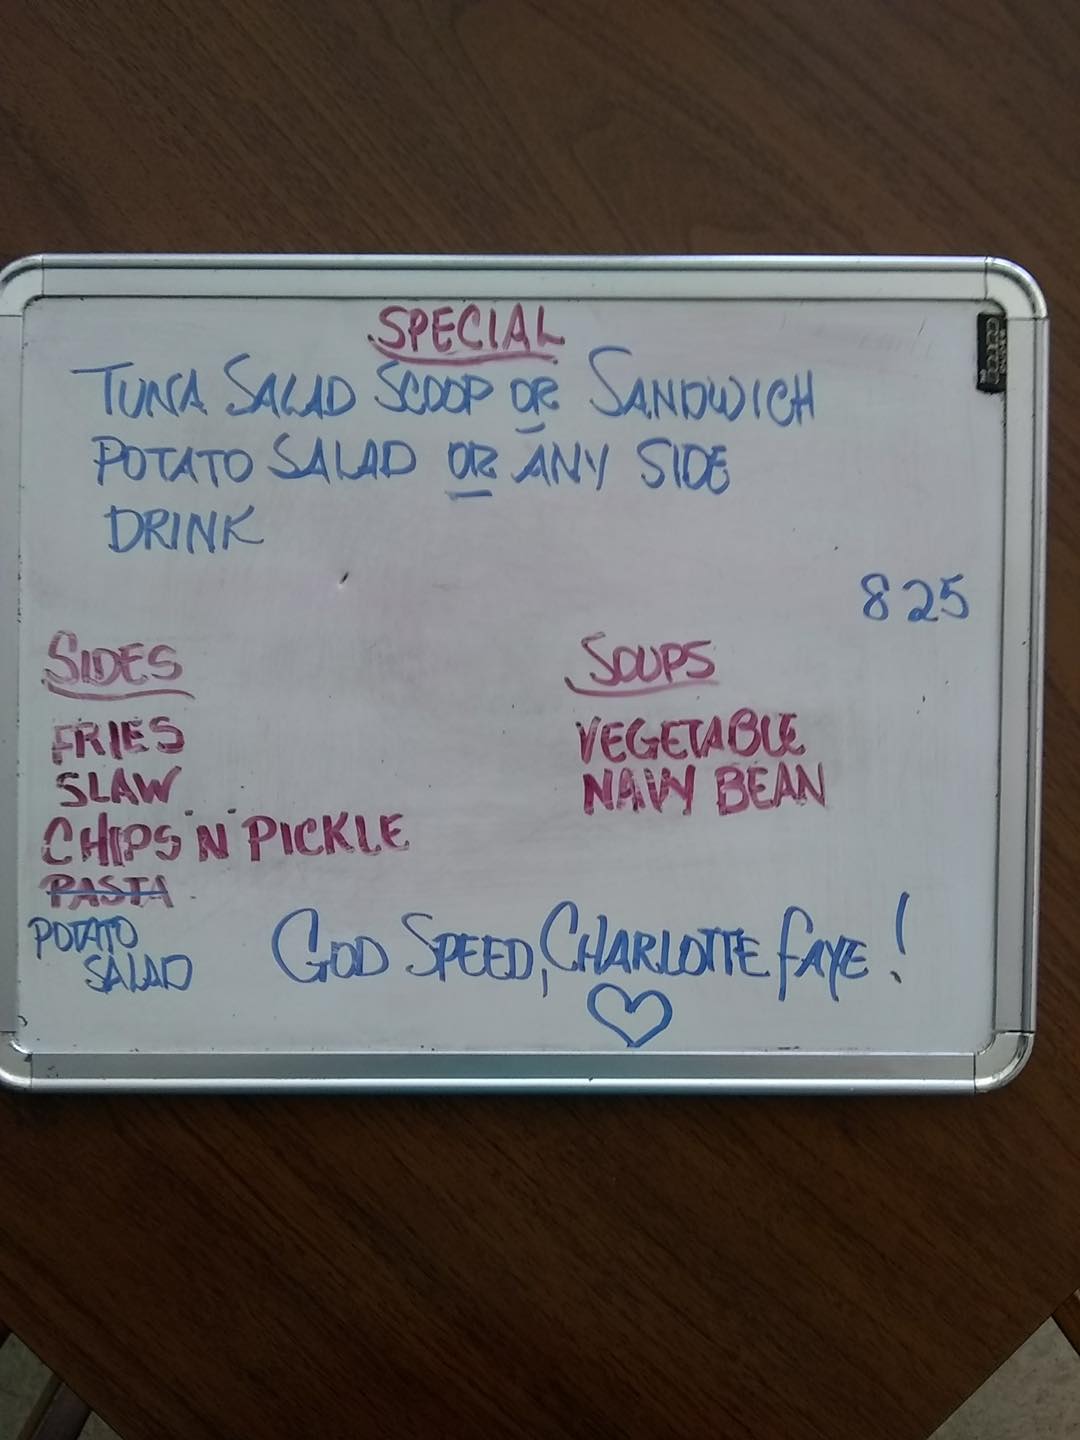 SPECIAL
TUNA SALAD SCOOP OR SANDWICH
POTATO SALAD OR ANY SIDE
DRINK
825
SIDES
FRIES
SLAW
CHIPS 'N' PICKLE
PASTA
POTATO
SALAD
SOUPS
VEGETABLE
NAVY BEAN
GOD SPEED, CHARLOTTE FAYE!